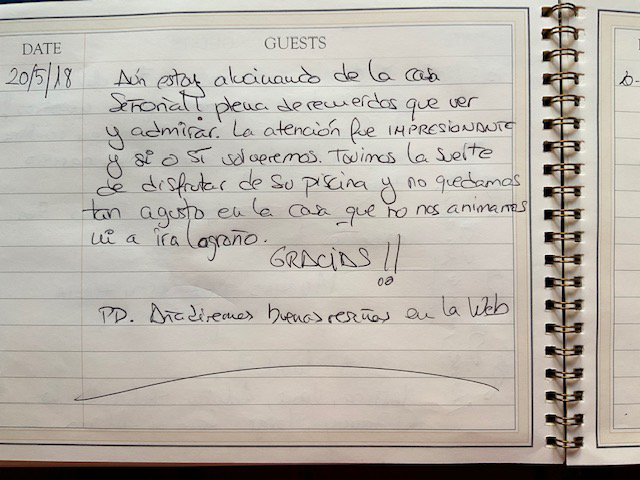 DATE
GUESTS
20/5/18
Aún estoy alucinando de la casa
Señorial! plena de recuerdos que ver
y admirar. La atención fue IMPRESIONANTE
y si o sí volveremos. Tuvimos la suerte
de disfrutar de su piscina y no quedamos
tan agusto en la casa que no nos animamos
ni a ir a Logroño.
GRACIAS!!
PD. Añadiremos buenas reseñas en la Web